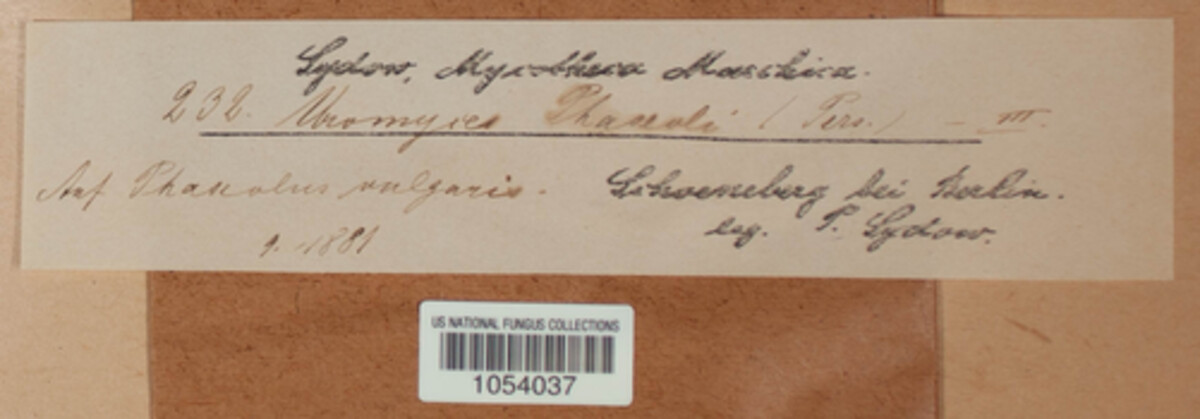 Sydow, Mycotheca Marchica.
232. Uromyces Phaseoli (Pers.) - III.
Auf Phaseolus vulgaris.
Schoeneberg bei Berlin.
9. 1881
leg. P. Sydow.
US NATIONAL FUNGUS COLLECTIONS
1054037